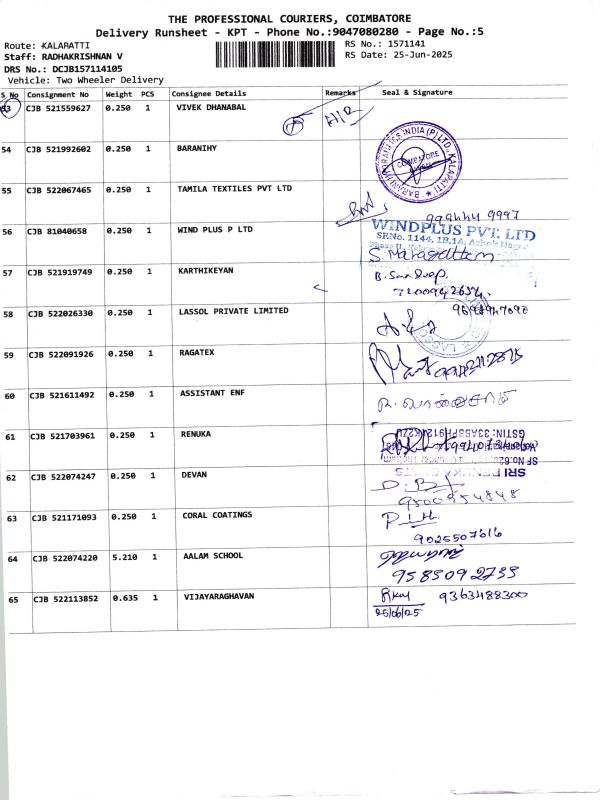 THE PROFESSIONAL COURIERS, COIMBATORE
Delivery Runsheet - KPT - Phone No.:9047080280 - Page No.:5
Route: KALAPATTI
RS No.: 1571141
Staff: RADHAKRISHNAN V
RS Date: 25-Jun-2025
DRS No.: DCJB157114105
Vehicle: Two Wheeler Delivery
S No Consignment No Weight PCS Consignee Details Remarks Seal & Signature
53 CJB 521559627 0.250 1 VIVEK DHANABAL
54 CJB 521992602 0.250 1 BARANIHY
COIMBATORE
55 CJB 522067465 0.250 1 TAMILA TEXTILES PVT LTD
56 CJB 81040658 0.250 1 WIND PLUS P LTD
WINDPLUS PVT. LTD
SF.No. 1144, 1B,1A, Ashok Nagar
57 CJB 521919749 0.250 1 KARTHIKEYAN
B. Sandeep.
58 CJB 522026330 0.250 1 LASSOL PRIVATE LIMITED
59 CJB 522091926 0.250 1 RAGATEX
60 CJB 521611492 0.250 1 ASSISTANT ENF
61 CJB 521703961 0.250 1 RENUKA
62 CJB 522074247 0.250 1 DEVAN
9500954848
63 CJB 521171093 0.250 1 CORAL COATINGS
9025507616
64 CJB 522074220 5.210 1 AALAM SCHOOL
9585092733
65 CJB 522113852 0.635 1 VIJAYARAGHAVAN
9363488300
25/06/25